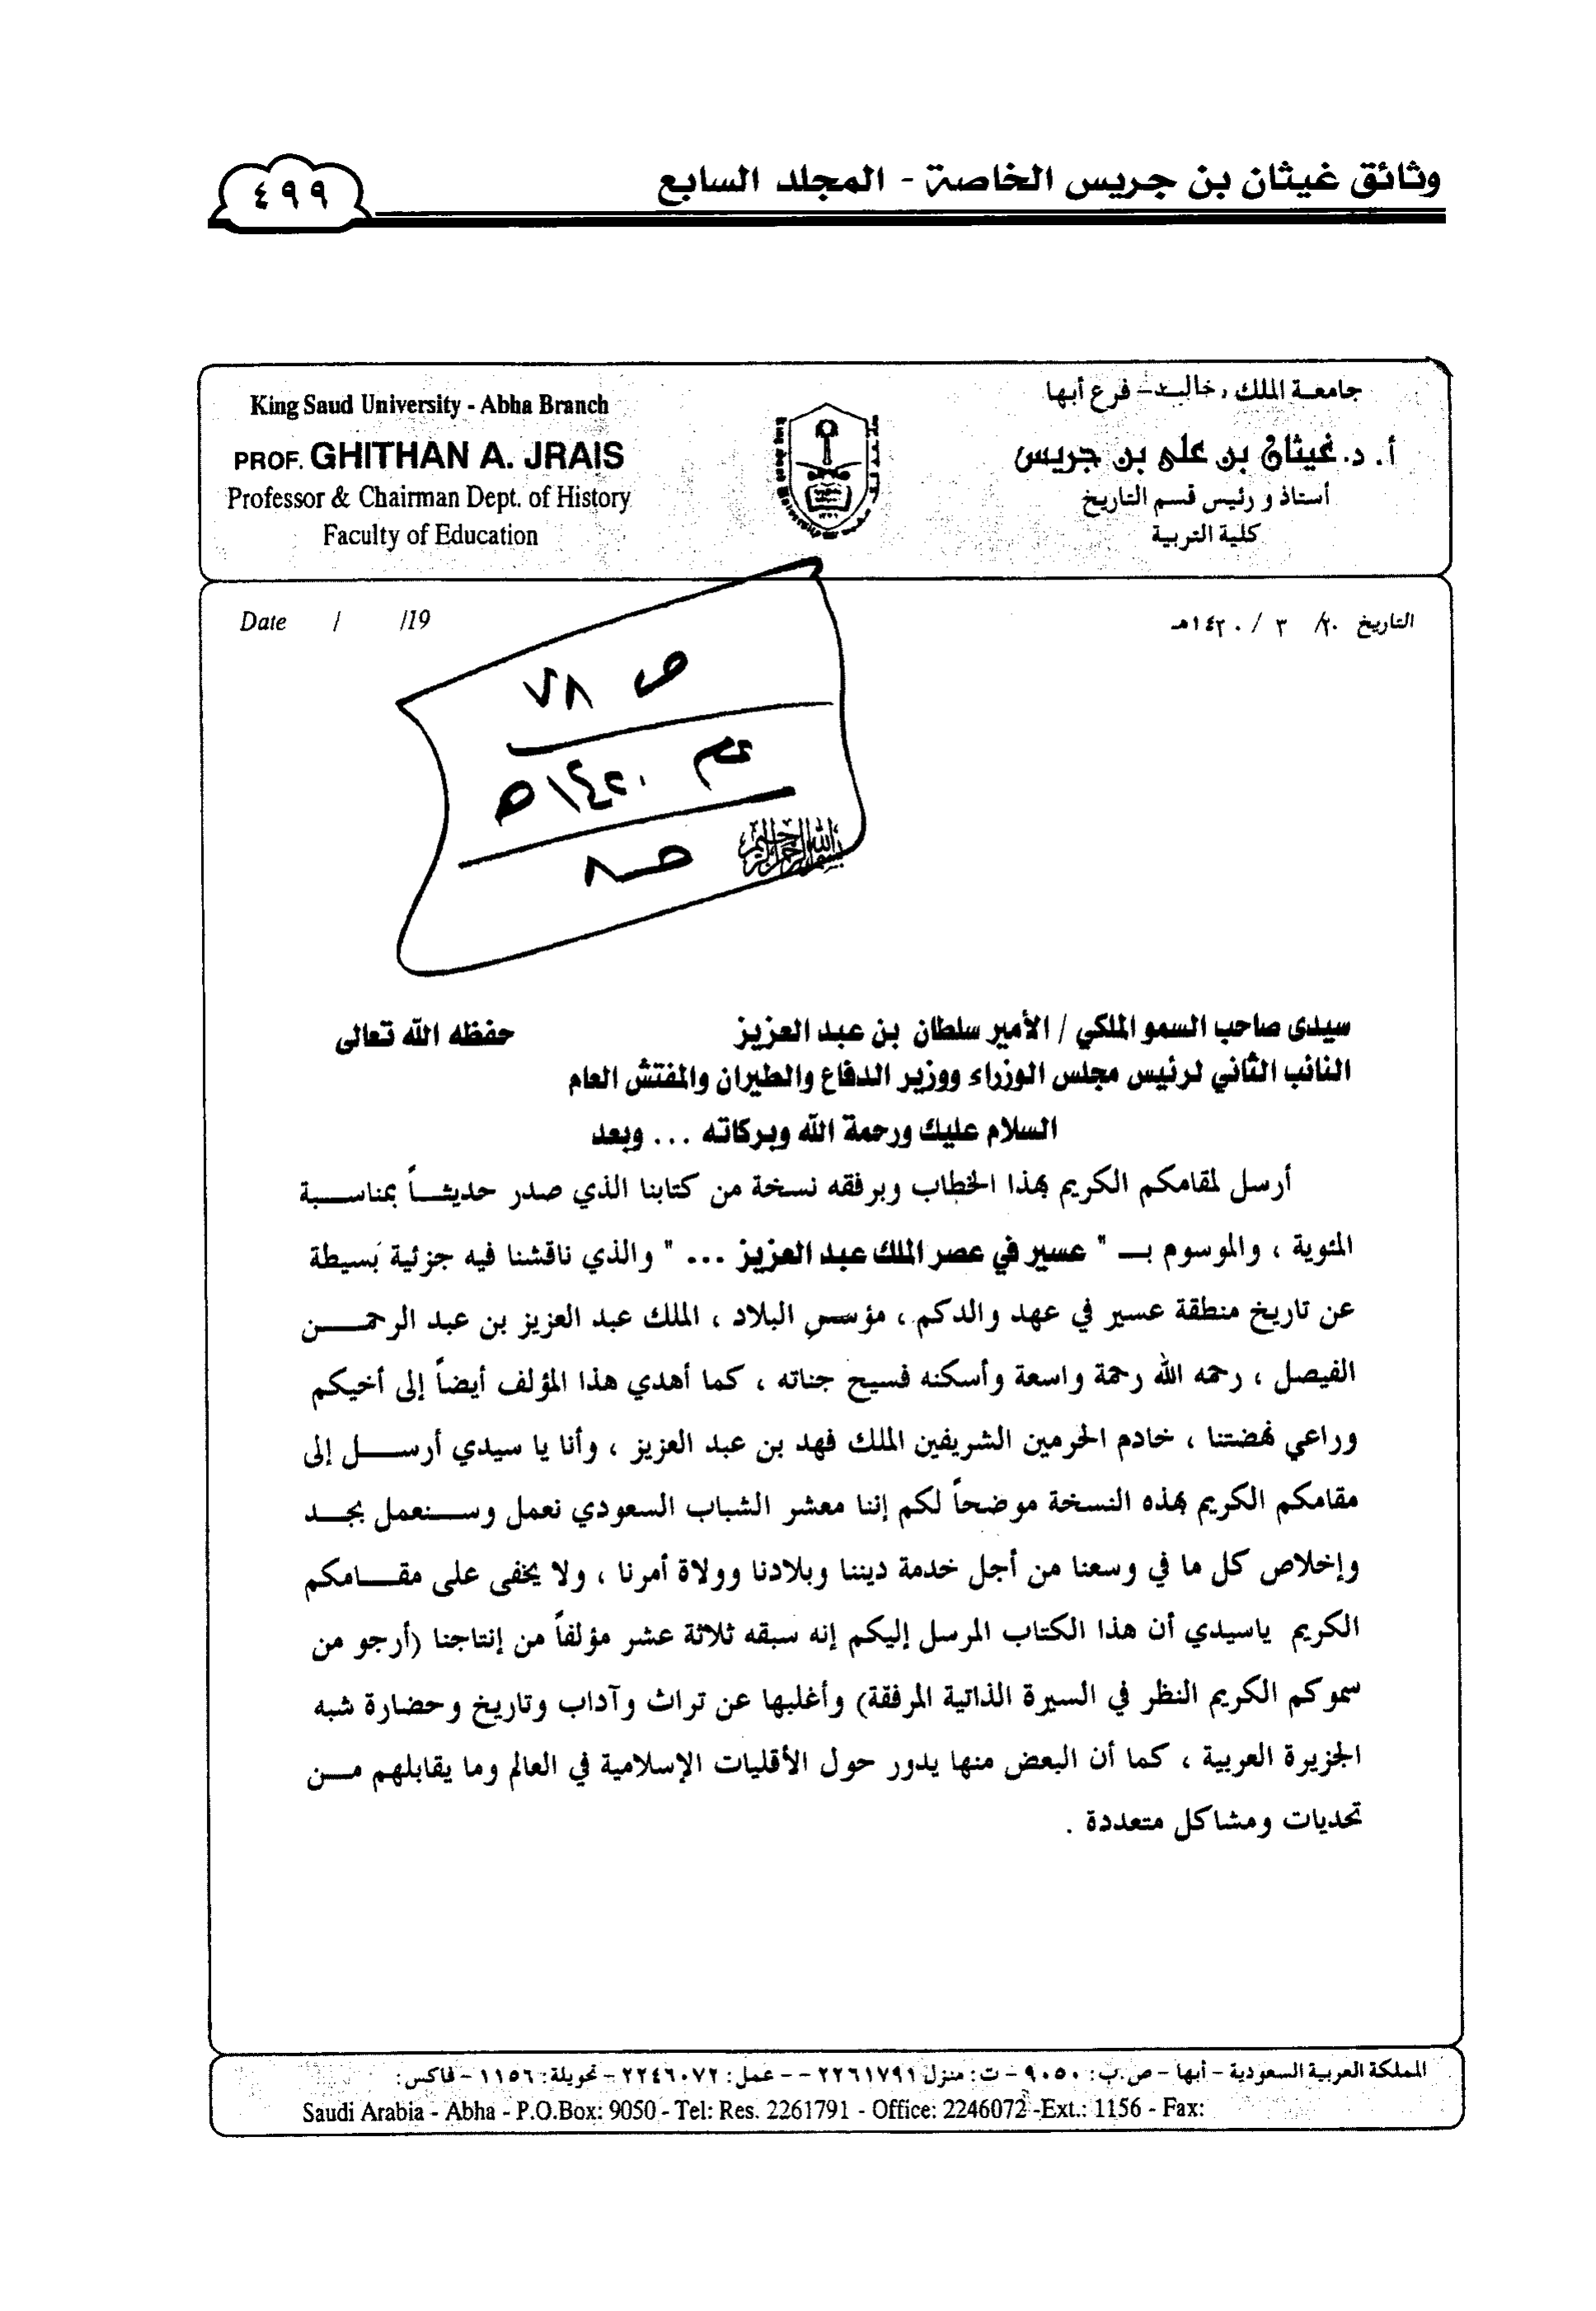 وثائق غيثان بن جريس الخاصة - المجلد السابع
٤٩٩
King Saud University - Abha Branch
PROF. GHITHAN A. JRAIS
Professor & Chairman Dept. of History
Faculty of Education
جامعة الملك خالد - فرع أبها
أ. د. غيثان بن علي بن جريس
أستاذ و رئيس قسم التاريخ
كلية التربية
Date / /19
التاريخ ٢٠/ ٣ / ١٤٢٠هـ
ص ٧٨
عم ١٤٢٠هـ
حـ ٨
بسم الله الرحمن الرحيم
سيدى صاحب السمو الملكي / الأمير سلطان بن عبد العزيز حفظه الله تعالى
النائب الثاني لرئيس مجلس الوزراء ووزير الدفاع والطيران والمفتش العام
السلام عليك ورحمة الله وبركاته ... وبعد
أرسل لمقامكم الكريم بهذا الخطاب وبرفقه نسخة من كتابنا الذي صدر حديثــاً بمناســبة
المئوية ، والموسوم بــ " عسير في عصر الملك عبد العزيز ... " والذي ناقشنا فيه جزئية بسيطة
عن تاريخ منطقة عسير في عهد والدكم ، مؤسس البلاد ، الملك عبد العزيز بن عبد الرحمــن
الفيصل ، رحمه الله رحمة واسعة وأسكنه فسيح جناته ، كما أهدي هذا المؤلف أيضاً إلى أخيكم
وراعي نهضتنا ، خادم الحرمين الشريفين الملك فهد بن عبد العزيز ، وأنا يا سيدي أرســل إلى
مقامكم الكريم بهذه النسخة موضحاً لكم إننا معشر الشباب السعودي نعمل وســنعمل بجــد
وإخلاص كل ما في وسعنا من أجل خدمة ديننا وبلادنا وولاة أمرنا ، ولا يخفى على مقــامكم
الكريم ياسيدي أن هذا الكتاب المرسل إليكم إنه سبقه ثلاثة عشر مؤلفاً من إنتاجنا (أرجو من
سموكم الكريم النظر في السيرة الذاتية المرفقة) وأغلبها عن تراث وآداب وتاريخ وحضارة شبه
الجزيرة العربية ، كما أن البعض منها يدور حول الأقليات الإسلامية في العالم وما يقابلهم مــن
تحديات ومشاكل متعددة .
المملكة العربية السعودية - أبها - ص.ب: ٩٠٥٠ - ت: منزل ٢٢٦١٧٩١ - - عمل: ٢٢٤٦٠٧٢ - تحويلة: ١١٥٦ - فاكس:
Saudi Arabia - Abha - P.O.Box: 9050 - Tel: Res. 2261791 - Office: 2246072 -Ext.: 1156 - Fax: